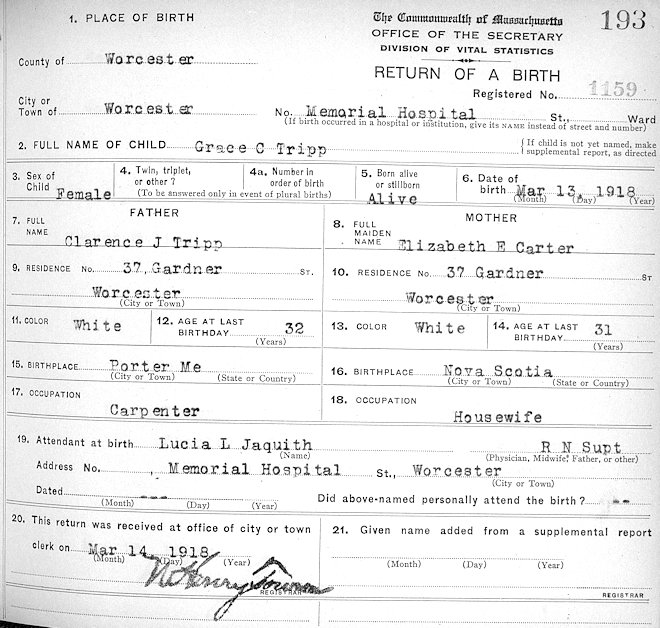 1. PLACE OF BIRTH
The Commonwealth of Massachusetts
193
OFFICE OF THE SECRETARY
DIVISION OF VITAL STATISTICS
RETURN OF A BIRTH
County of Worcester
Registered No. 1159
City or
Town of Worcester No. Memorial Hospital St., Ward
(If birth occurred in a hospital or institution, give its NAME instead of street and number)
2. FULL NAME OF CHILD Grace C Tripp
{ If child is not yet named, make
supplemental report, as directed
3. Sex of Child Female
4. Twin, triplet, or other ?
4a. Number in order of birth
(To be answered only in event of plural births)
5. Born alive or stillborn Alive
6. Date of birth Mar 13, 1918
(Month) (Day) (Year)
FATHER
MOTHER
7. FULL NAME Clarence J Tripp
8. FULL MAIDEN NAME Elizabeth E Carter
9. RESIDENCE No. 37, Gardner ST.
10. RESIDENCE No. 37 Gardner ST
Worcester
(City or Town)
Worcester
(City or Town)
11. COLOR White
12. AGE AT LAST BIRTHDAY 32
(Years)
13. COLOR White
14. AGE AT LAST BIRTHDAY 31
(Years)
15. BIRTHPLACE Porter Me
(City or Town) (State or Country)
16. BIRTHPLACE Nova Scotia
(City or Town) (State or Country)
17. OCCUPATION
Carpenter
18. OCCUPATION
Housewife
19. Attendant at birth Lucia L Jaquith R N Supt
(Name) (Physician, Midwife, Father, or other)
Address No. , Memorial Hospital St., Worcester
(City or Town)
Dated --- Did above-named personally attend the birth? --
(Month) (Day) (Year)
20. This return was received at office of city or town
clerk on Mar 14, 1918
(Month) (Day) (Year)
W Henry Towne
REGISTRAR
21. Given name added from a supplemental report
(Month) (Day) (Year)
REGISTRAR